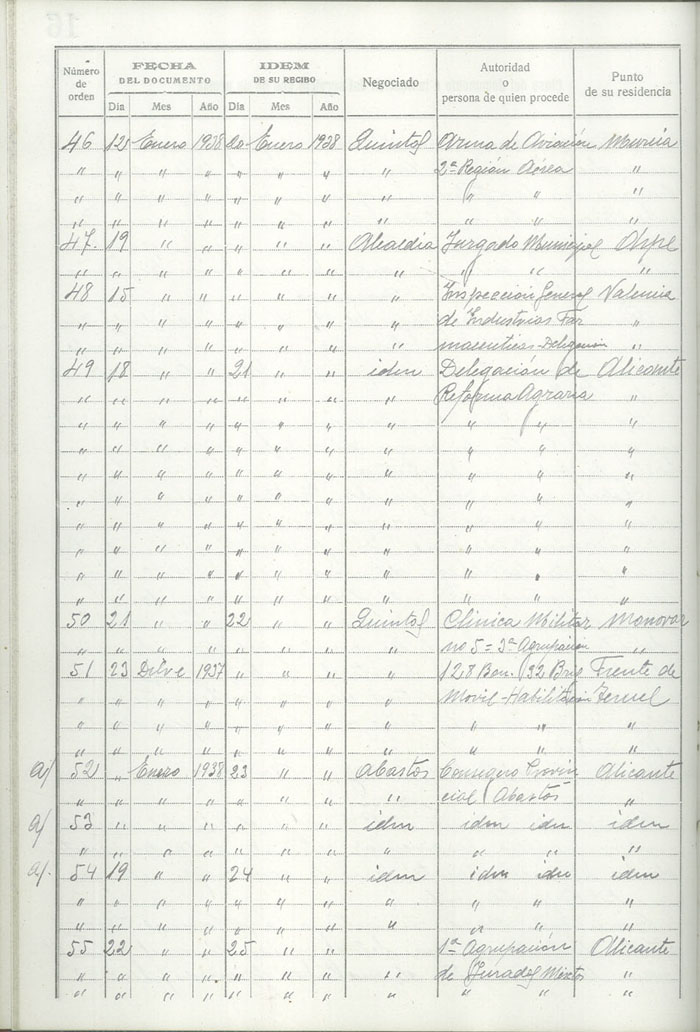 Número de orden FECHA DEL DOCUMENTO IDEM DE SU RECIBO Negociado Autoridad o persona de quien procede Punto de su residencia
Día Mes Año Día Mes Año
46 12 Enero 1938 20 Enero 1938 Quintas Arma de Aviación Murcia
" " " " " " " " 2ª Región Aérea "
" " " " " " " " " " "
" " " " " " " " " " "
47 19 " " " " " Alcaldia Juzgado Municipal Aspe
" " " " " " " " " " "
48 15 " " " " " " Inspeccion General Valencia
" " " " " " " " de Industrias Far "
" " " " " " " " maceuticas Delegación "
49 18 " " 21 " " idm Delegación de Alicante
" " " " " " " " Reforma Agraria "
" " " " " " " " " " "
" " " " " " " " " " "
" " " " " " " " " " "
" " " " " " " " " " "
" " " " " " " " " " "
" " " " " " " " " " "
" " " " " " " " " " "
" " " " " " " " " " "
50 21 " " 22 " " Quintas Clinica Militar Monovar
" " " " " " " " no 5 = 3ª Agrupación "
51 23 Dbre 1937 " " " " 128 Bon. 32 Brig Frente de
" " " " " " " " Movil - Habilitación Teruel
" " " " " " " " " " "
" " " " " " " " " " "
a/ 52 " Enero 1938 23 " " Abastos Consegero Provin Alicante
" " " " " " " " cial Abastos "
a/ 53 " " " " " " idm idm idm idm
" " " " " " " " " " "
a/. 54 19 " " 24 " " idm idm idm idm
" " " " " " " " " " "
" " " " " " " " " " "
55 22 " " 25 " " 1ª Agrupación Alicante
" " " " " " " " de Jurados Mixtos "
" " " " " " " " " " "